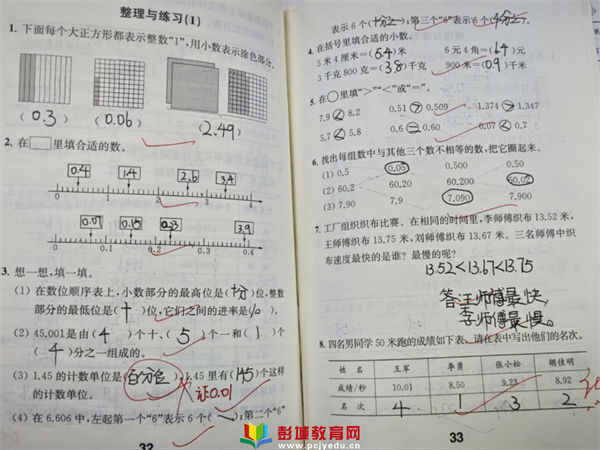 整理与练习(1)
1. 下面每个大正方形都表示整数“1”,用小数表示涂色部分。
(0.3) (0.06) (2.49)
2. 在□里填合适的数。
0.4 1.4 2.6 3.4
0 1 2 3 4
0.07 0.15 0.23 3.9
0 0.1 0.2 0.3 0.4
3. 想一想,填一填。
(1) 在数位顺序表上,小数部分的最高位是(十分)位,整数
部分的最低位是(十)位,它们之间的进率是(10)。
(2) 45.001是由(4)个十、(5)个一和(1)个
(4)分之一组成的。
(3) 1.45的计数单位是(百分位),1.45里有(145)个这样
的计数单位。
记0.01
(4) 在6.606中,左起第一个“6”表示6个(一);第二个“6”
32
表示6个(十分之一);第三个“6”表示6个(千分之一)。
4. 在括号里填合适的小数。
5米4厘米=(5.4)米 6元4角=(6.4)元
3千克800克=(3.8)千克 900米=(0.9)千米
5. 在○里填“>”“<”或“=”。
7.9<8.2 0.51>0.509 1.374>1.347
5.7<5.8 0.6=0.60 0.07<0.7
6. 找出每组数中与其他三个数不相等的数,把它圈起来。
(1) 0.5 0.05 0.500 0.50
(2) 60.2 60.20 60.200 60.02
(3) 7.90 7.9 7.090 7.900
7. 工厂组织织布比赛。在相同的时间里,李师傅织布13.52米,
王师傅织布13.75米,刘师傅织布13.67米。三名师傅中织
布速度最快的是谁?最慢的呢?
13.52<13.67<13.75
答:王师傅最快,
李师傅最慢。
8. 四名男同学50米跑的成绩如下表。请在表中写出他们的名次。
王军 李勇 张小松 胡佳明
成绩/秒 10.01 8.50 9.23 8.92
名次 4 1 3 2
33
彭城教育网
www.pcjyedu.cn